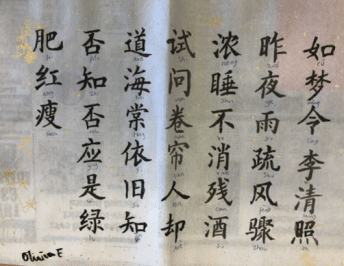 如梦令李清照
昨夜雨疏风骤
浓睡不消残酒
试问卷帘人却
道海棠依旧知
否知否应是绿
肥红瘦
Olivia E